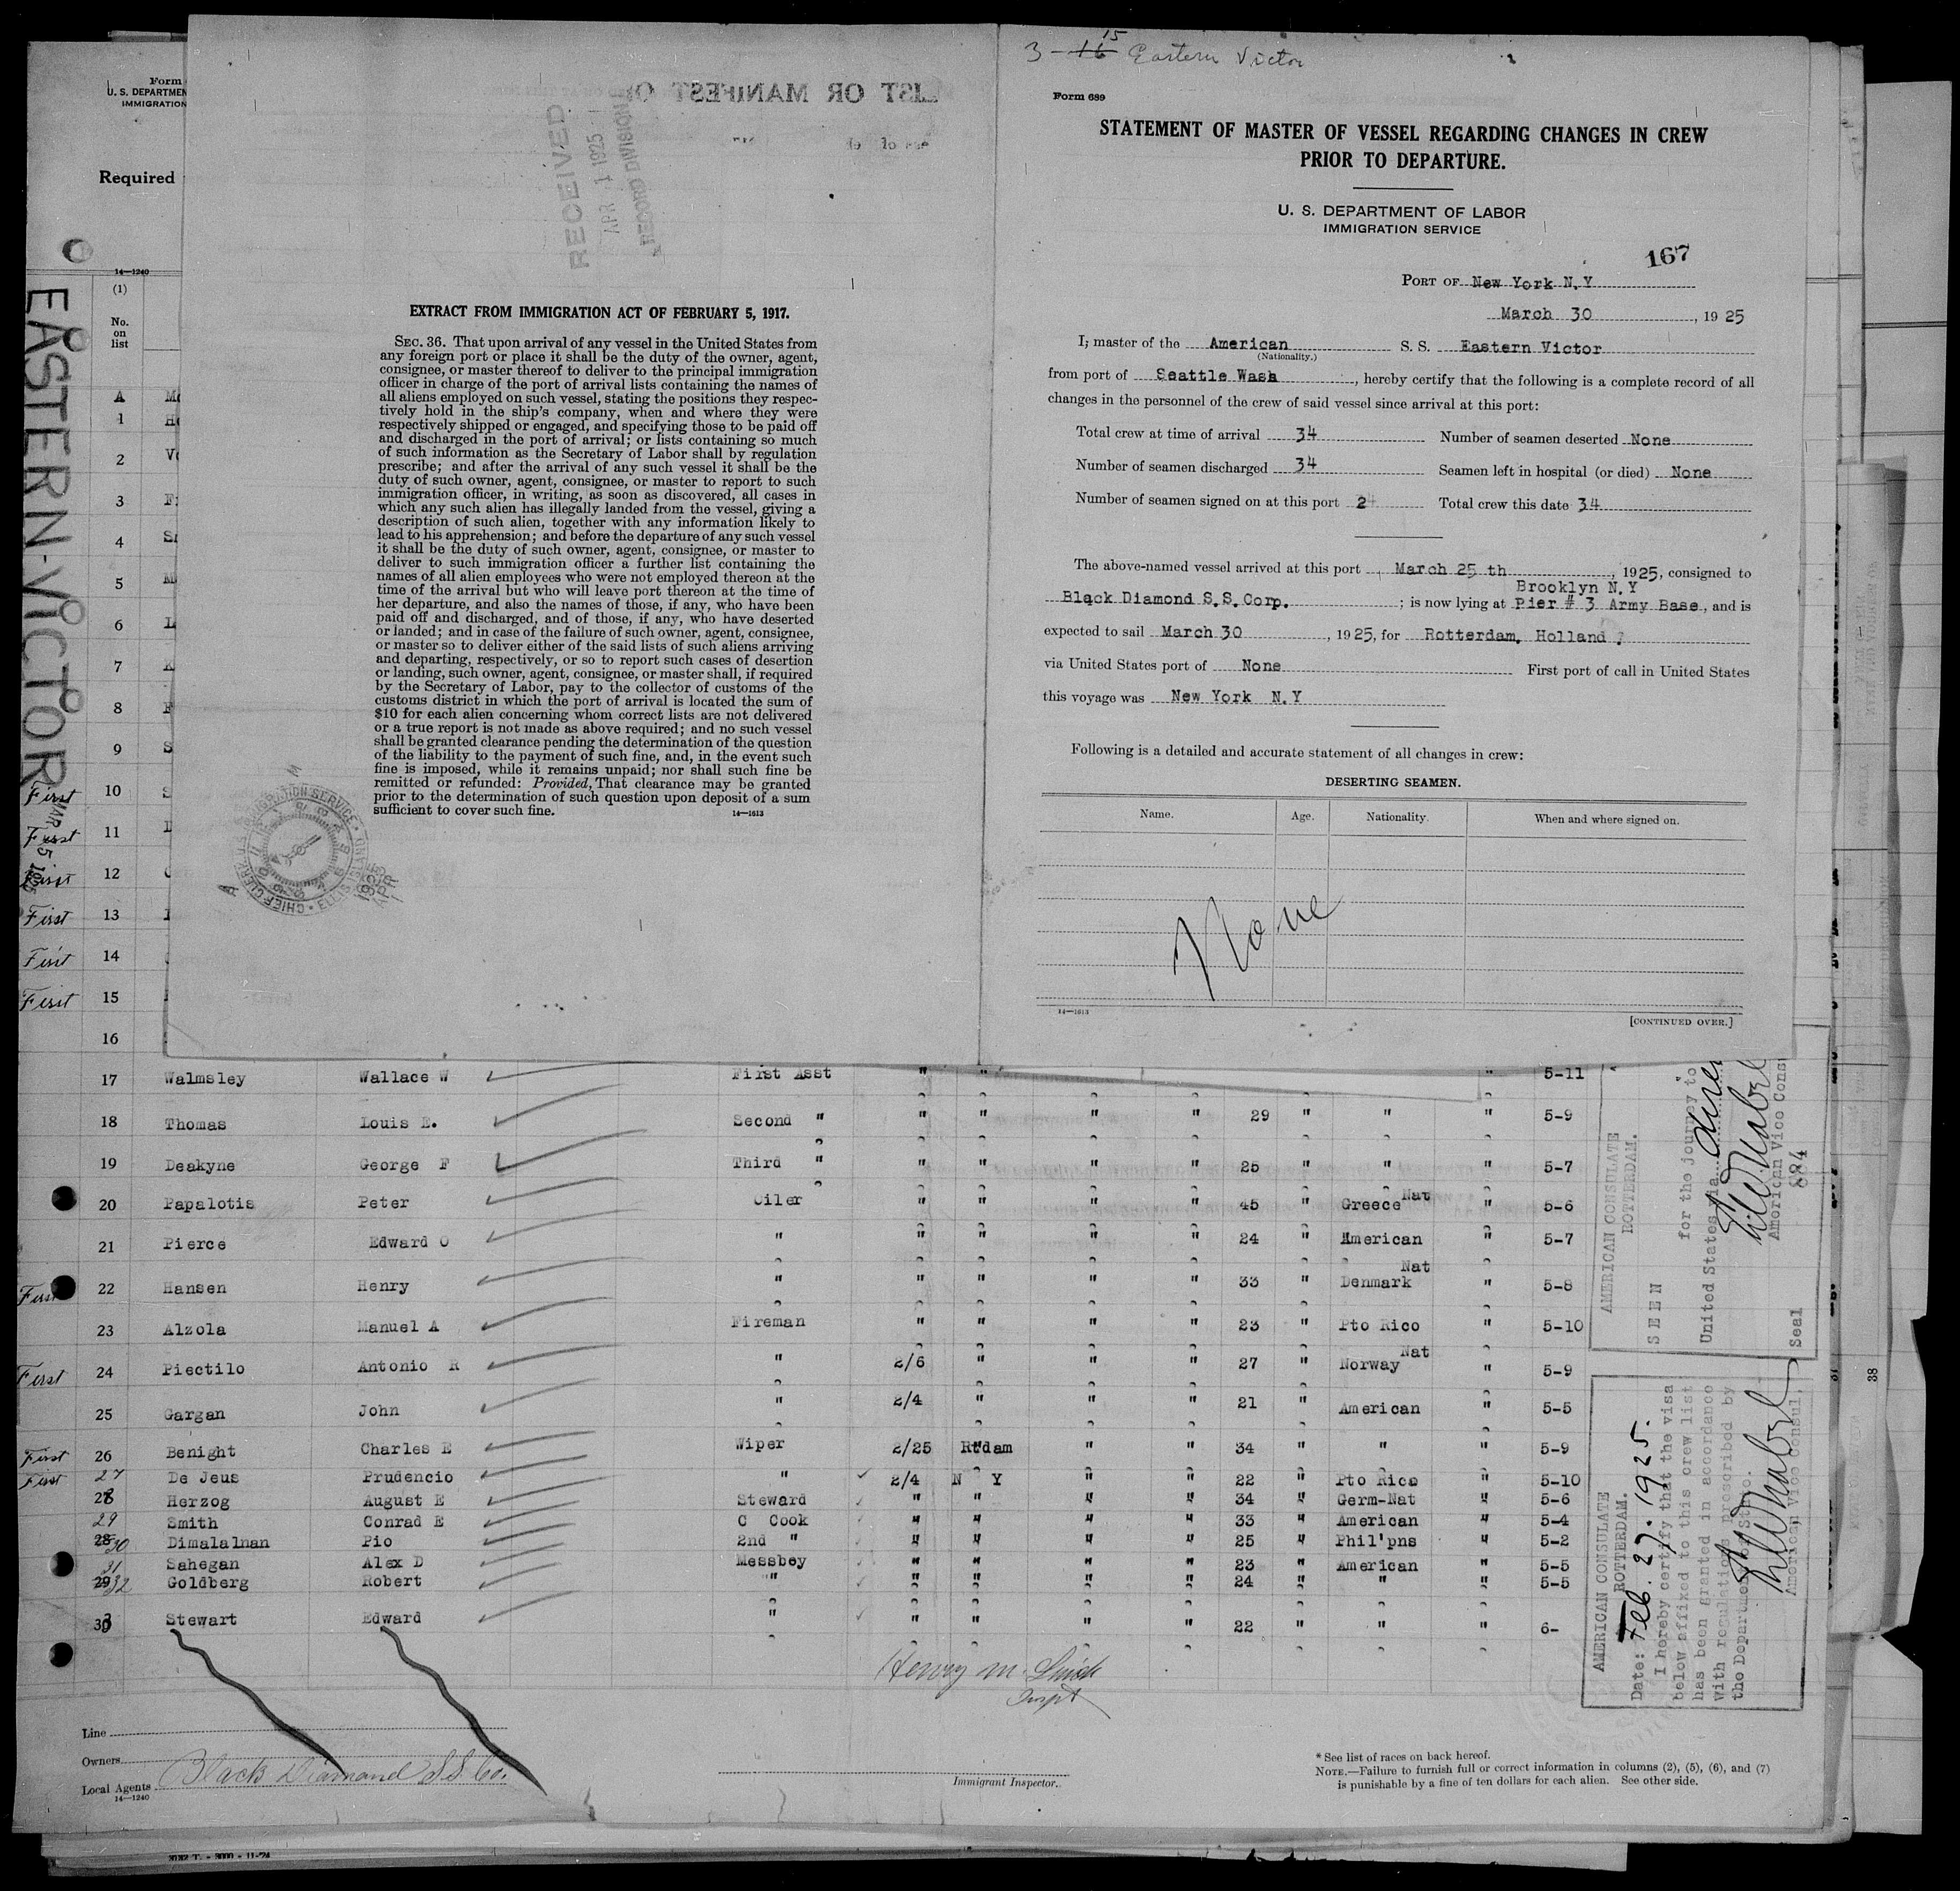 3 - 16 15 Eastern Victor
Form 689
STATEMENT OF MASTER OF VESSEL REGARDING CHANGES IN CREW
PRIOR TO DEPARTURE.
U. S. DEPARTMENT OF LABOR
IMMIGRATION SERVICE
167
PORT OF New York N.Y
March 30, 1925
I, master of the American S. S. Eastern Victor
(Nationality.)
from port of Seattle Wash, hereby certify that the following is a complete record of all
changes in the personnel of the crew of said vessel since arrival at this port:
Total crew at time of arrival 34 Number of seamen deserted None
Number of seamen discharged 34 Seamen left in hospital (or died) None
Number of seamen signed on at this port 24 Total crew this date 34
The above-named vessel arrived at this port March 25 th, 1925, consigned to
Brooklyn N.Y
Black Diamond S.S.Corp. ; is now lying at Pier # 3 Army Base, and is
expected to sail March 30, 1925, for Rotterdam, Holland
via United States port of None First port of call in United States
this voyage was New York N.Y
Following is a detailed and accurate statement of all changes in crew:
DESERTING SEAMEN.
Name. Age. Nationality. When and where signed on.
None
14—1613
[CONTINUED OVER.]
LIST OR MANIFEST O
RECEIVED
APR 1 1925
RECORD DIVISION
EXTRACT FROM IMMIGRATION ACT OF FEBRUARY 5, 1917.
SEC. 36. That upon arrival of any vessel in the United States from
any foreign port or place it shall be the duty of the owner, agent,
consignee, or master thereof to deliver to the principal immigration
officer in charge of the port of arrival lists containing the names of
all aliens employed on such vessel, stating the positions they respec-
tively hold in the ship's company, when and where they were
respectively shipped or engaged, and specifying those to be paid off
and discharged in the port of arrival; or lists containing so much
of such information as the Secretary of Labor shall by regulation
prescribe; and after the arrival of any such vessel it shall be the
duty of such owner, agent, consignee, or master to report to such
immigration officer, in writing, as soon as discovered, all cases in
which any such alien has illegally landed from the vessel, giving a
description of such alien, together with any information likely to
lead to his apprehension; and before the departure of any such vessel
it shall be the duty of such owner, agent, consignee, or master to
deliver to such immigration officer a further list containing the
names of all alien employees who were not employed thereon at the
time of the arrival but who will leave port thereon at the time of
her departure, and also the names of those, if any, who have been
paid off and discharged, and of those, if any, who have deserted
or landed; and in case of the failure of such owner, agent, consignee,
or master so to deliver either of the said lists of such aliens arriving
and departing, respectively, or so to report such cases of desertion
or landing, such owner, agent, consignee, or master shall, if required
by the Secretary of Labor, pay to the collector of customs of the
customs district in which the port of arrival is located the sum of
$10 for each alien concerning whom correct lists are not delivered
or a true report is not made as above required; and no such vessel
shall be granted clearance pending the determination of the question
of the liability to the payment of such fine, and, in the event such
fine is imposed, while it remains unpaid; nor shall such fine be
remitted or refunded: Provided, That clearance may be granted
prior to the determination of such question upon deposit of a sum
sufficient to cover such fine.
14—1613
Form
U. S. DEPARTMEN
IMMIGRATION
Required
14—1240
EASTERN-VICTOR
(1)
No.
on
list
A
1
2
3
4
5
6
7
8
9
First 10
First 11
First 12
First 13
First 14
First 15
16
17 Walmsley Wallace W First Asst " " " 5-11
18 Thomas Louis E. Second " " " " " 29 " " " 5-9
19 Deakyne George F Third " " " " " 25 " " " 5-7
20 Papalotis Peter Oiler " " " " 45 " Greece Nat " 5-6
21 Pierce Edward O " " " " " 24 " American " 5-7
First 22 Hansen Henry " " " " " 33 " Denmark Nat " 5-8
23 Alzola Manuel A Fireman " " " " 23 " Pto Rico " 5-10
First 24 Piectilo Antonio R " 2/6 " " " 27 " Norway Nat " 5-9
25 Gargan John " 2/4 " " " 21 " American " 5-5
First 26 Benight Charles E Wiper 2/25 Rtdam " " 34 " " " 5-9
First 27 De Jeus Prudencio " 2/4 N Y " " 22 " Pto Rico " 5-10
28 Herzog August E Steward " " " " 34 " Germ-Nat " 5-6
29 Smith Conrad E C Cook " " " " 33 " American " 5-4
28 30 Dimalalnan Pio 2nd " " " " " 25 " Phil'pns " 5-2
31 Sahegan Alex D Messboy " " " " 23 " American " 5-5
29 32 Goldberg Robert " " " " " 24 " " " 5-5
33 Stewart Edward " " " " " 22 " " " 6-
Henry M.
Inspt
Line
Owners
Local Agents Black Diamond S S Co.
14—1240
Immigrant Inspector.
* See list of races on back hereof.
NOTE.—Failure to furnish full or correct information in columns (2), (5), (6), and (7)
is punishable by a fine of ten dollars for each alien. See other side.
AMERICAN CONSULATE
ROTTERDAM.
SEEN
for the journey to
United States via
American Vice Cons
884
Seal
AMERICAN CONSULATE
ROTTERDAM.
Date: Feb. 27. 1925.
I hereby certify that the visa
below affixed to this crew list
has been granted in accordance
with regulations prescribed by
the Department of State.
American Vice Consul,
38